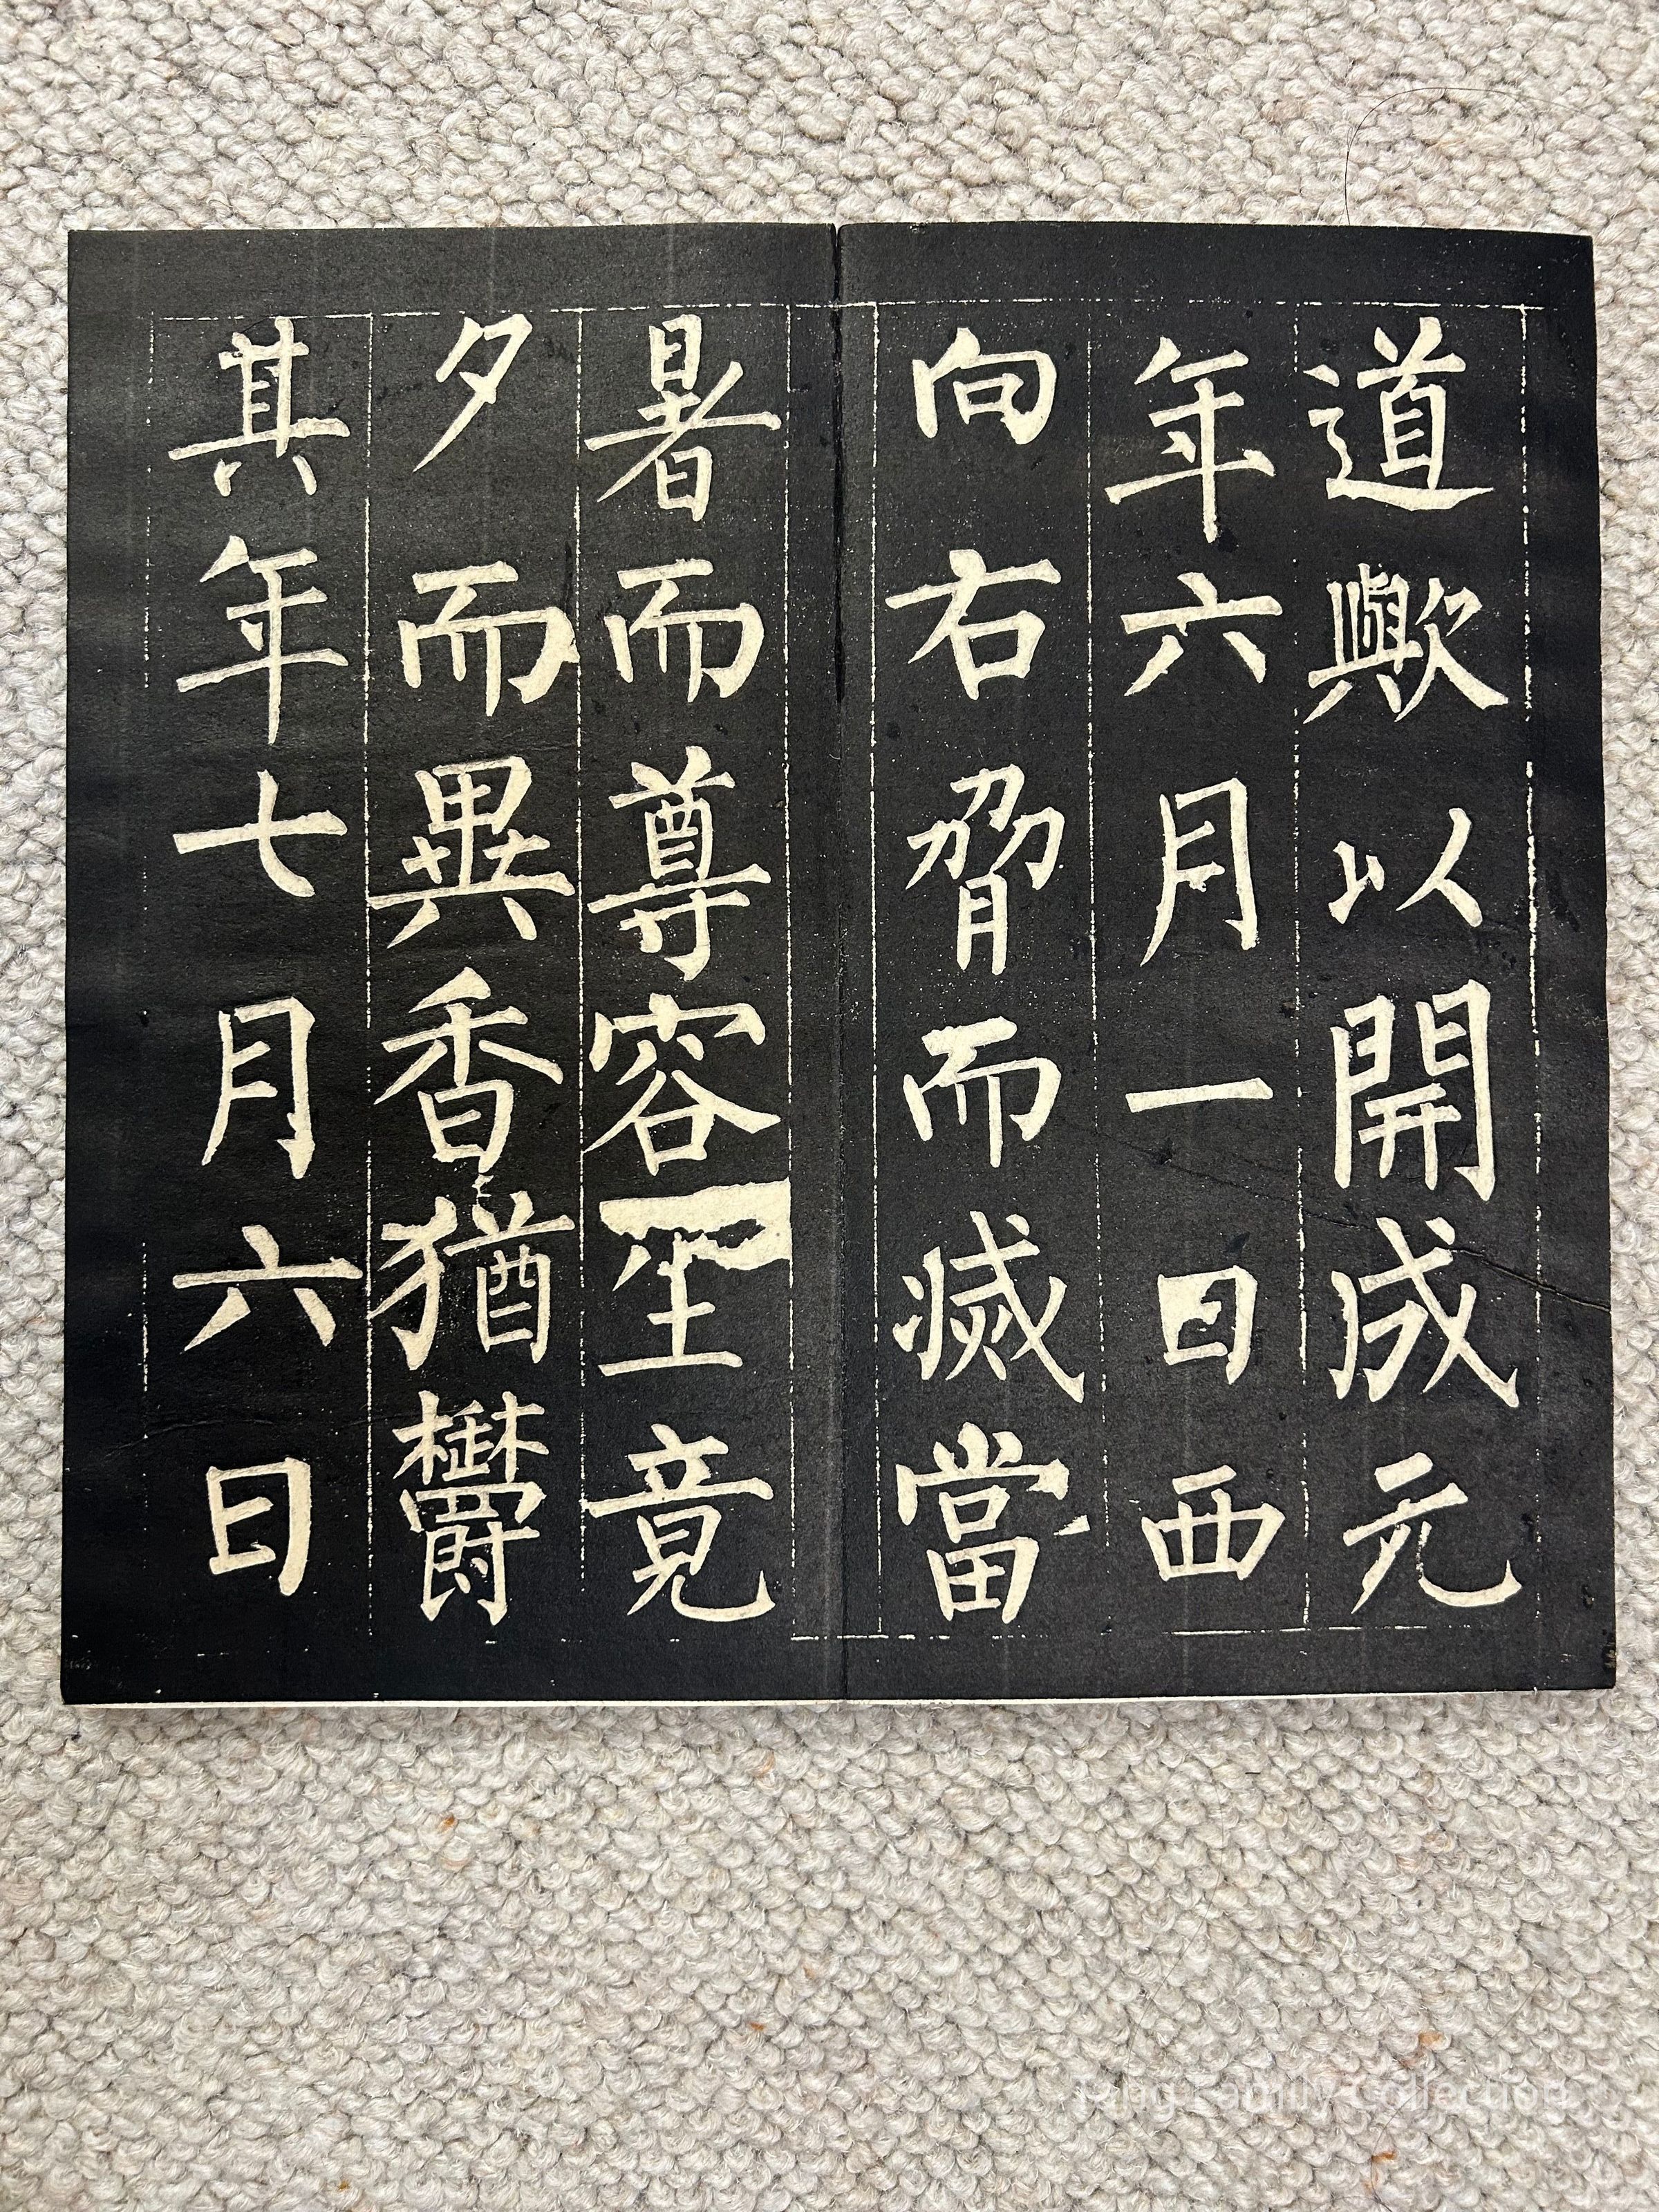 道歟以開成元
年六月一日西
向右脅而滅當
暑而尊容坐竟
夕而異香猶鬱
其年七月六日
Tang Family Collection